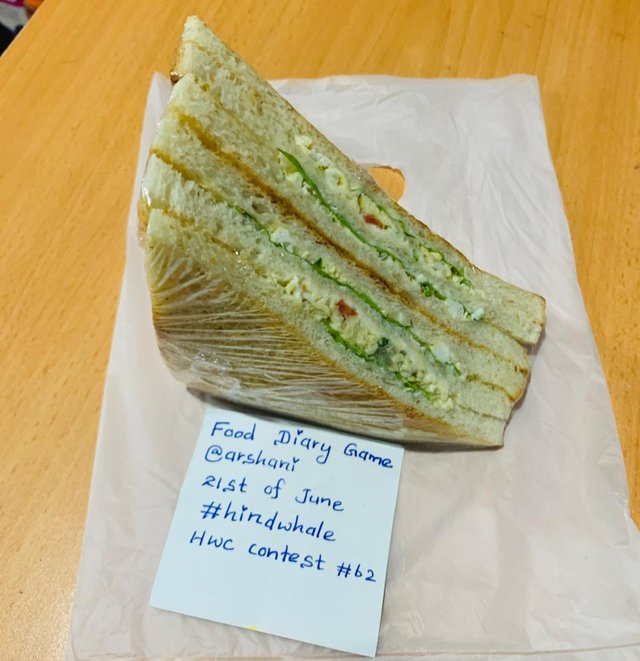 Food Diary Game
@arshani
21st of June
#hindwhale
HWC contest #62